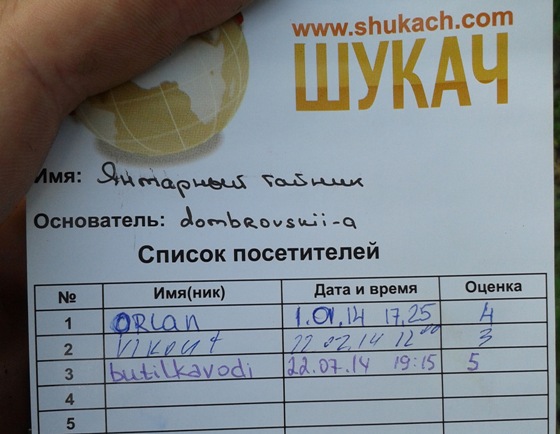 www.shukach.com
ШУКАЧ
Имя: Янтарный тайник
Основатель: dombrovskii-a
Список посетителей
№ Имя(ник) Дата и время Оценка
1 ORLAN 1.01.14 17.25 4
2 22.02.14 12:00 3
3 butilkavodi 22.07.14 19:15 5
4
5